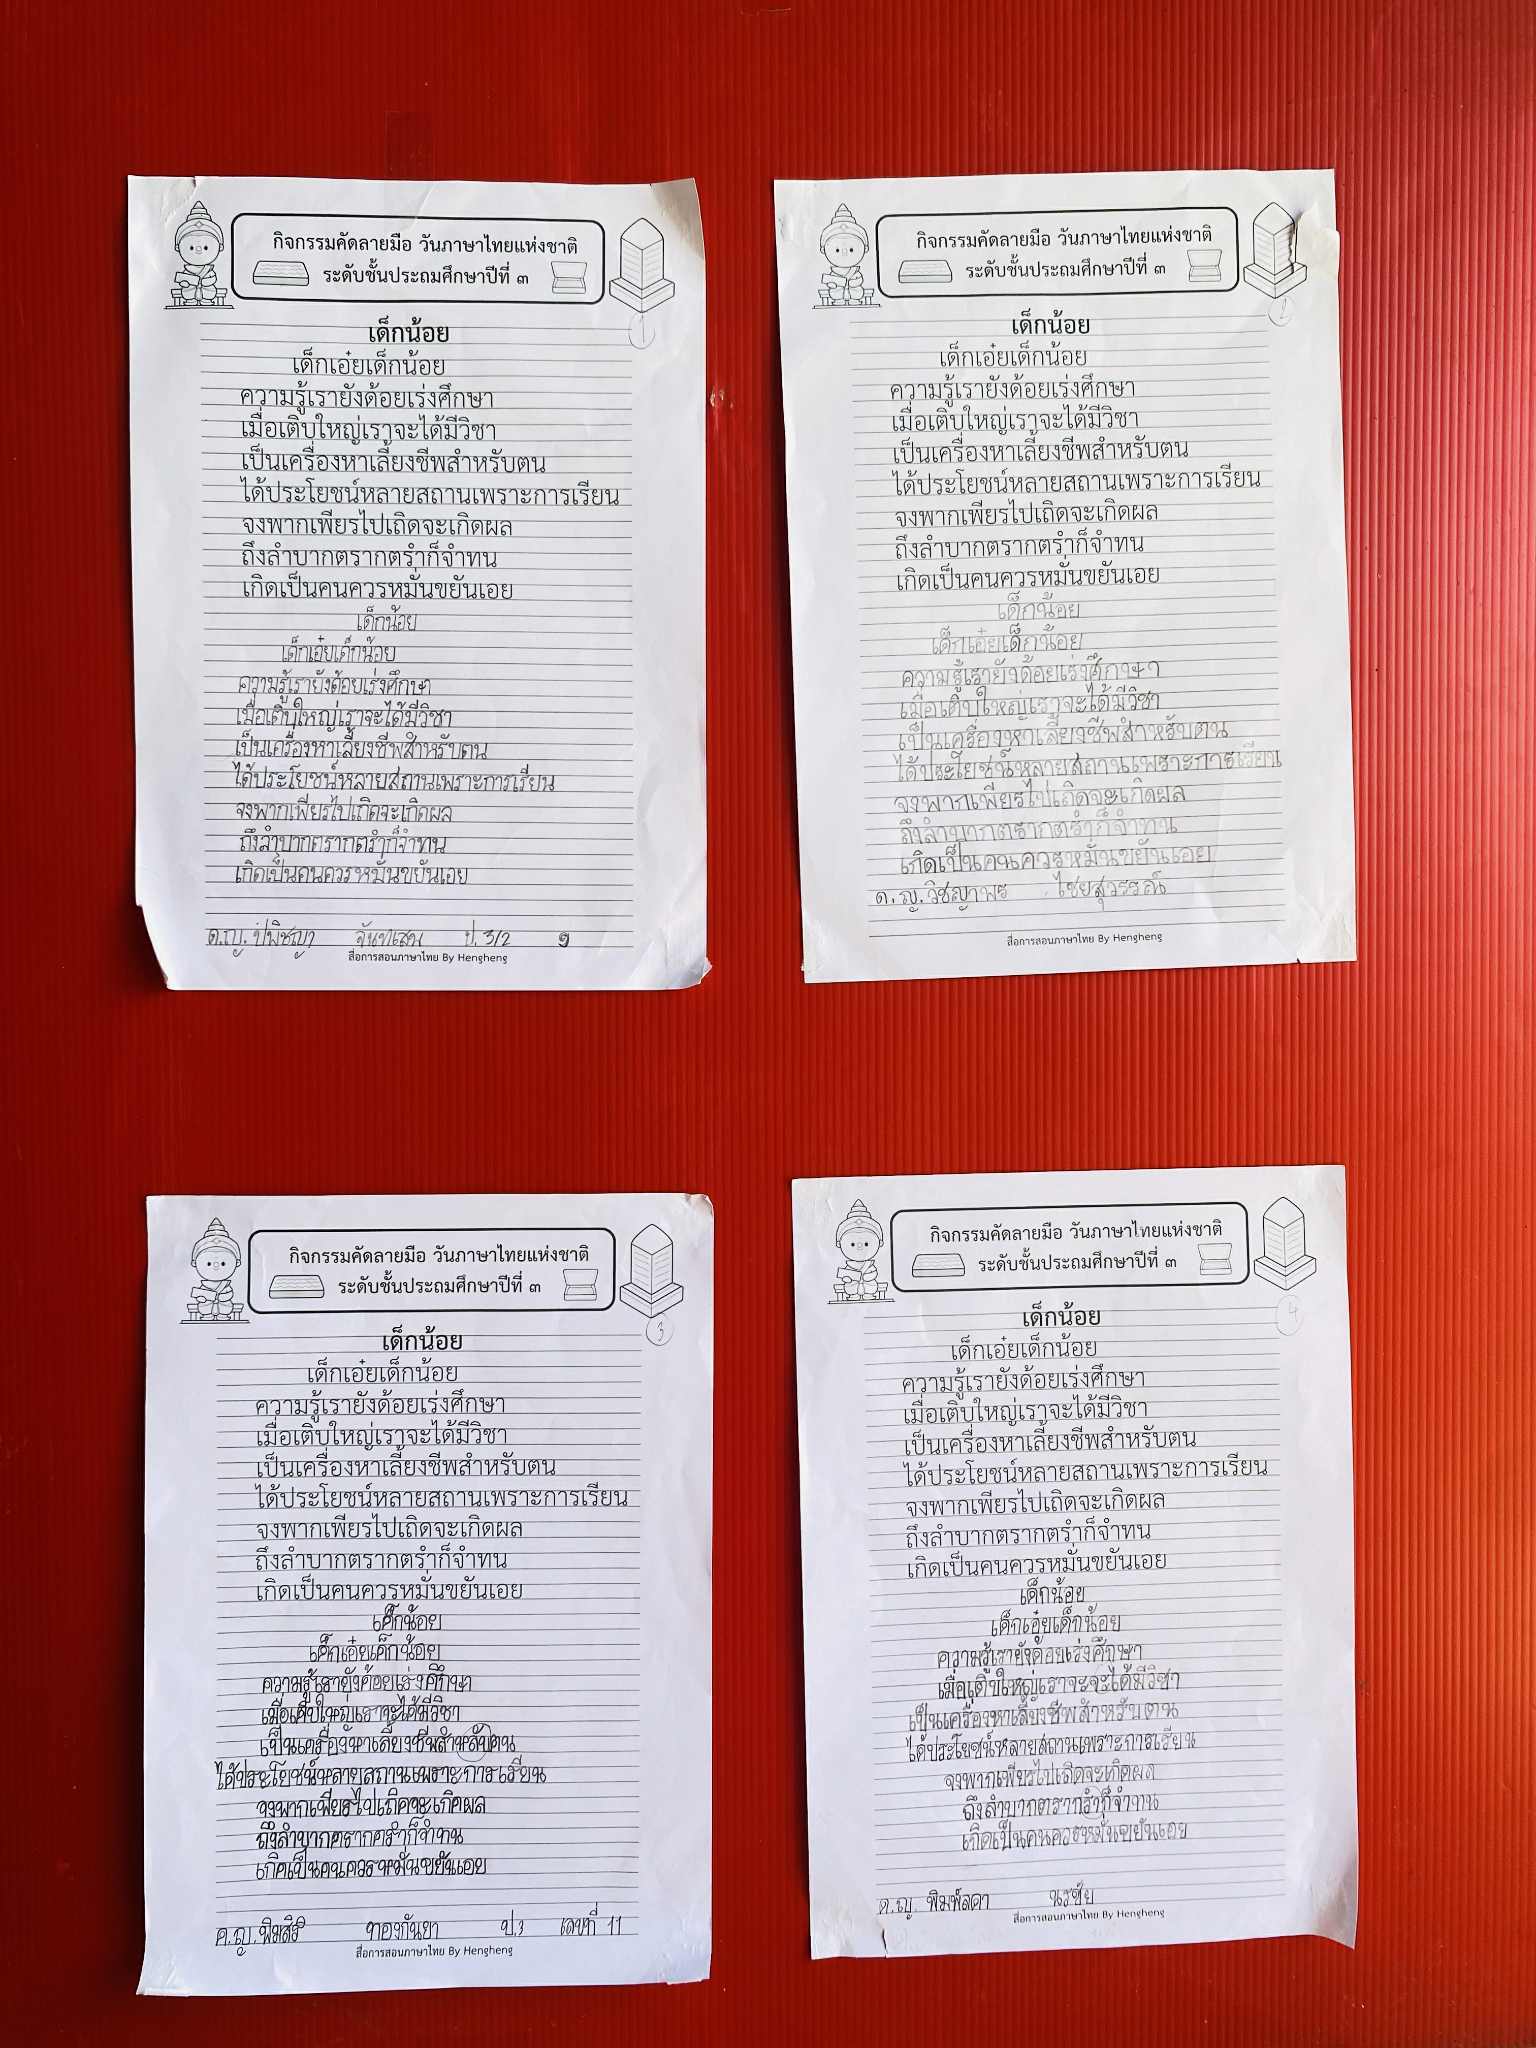 กิจกรรมคัดลายมือ วันภาษาไทยแห่งชาติ
ระดับชั้นประถมศึกษาปีที่ ๓
1
เด็กน้อย
เด็กเอ๋ยเด็กน้อย
ความรู้เรายังด้อยเร่งศึกษา
เมื่อเติบใหญ่เราจะได้มีวิชา
เป็นเครื่องหาเลี้ยงชีพสำหรับตน
ได้ประโยชน์หลายสถานเพราะการเรียน
จงพากเพียรไปเถิดจะเกิดผล
ถึงลำบากตรากตรำก็จำทน
เกิดเป็นคนควรหมั่นขยันเอย
เด็กน้อย
เด็กเอ๋ยเด็กน้อย
ความรู้เรายังด้อยเร่งศึกษา
เมื่อเติบใหญ่เราจะได้มีวิชา
เป็นเครื่องหาเลี้ยงชีพสำหรับตน
ได้ประโยชน์หลายสถานเพราะการเรียน
จงพากเพียรไปเถิดจะเกิดผล
ถึงลำบากตรากตรำก็จำทน
เกิดเป็นคนควรหมั่นขยันเอย
ด.ญ. ปพิชญา จันทเสน ป. 3/2 ๑
สื่อการสอนภาษาไทย By Hengheng
กิจกรรมคัดลายมือ วันภาษาไทยแห่งชาติ
ระดับชั้นประถมศึกษาปีที่ ๓
2
เด็กน้อย
เด็กเอ๋ยเด็กน้อย
ความรู้เรายังด้อยเร่งศึกษา
เมื่อเติบใหญ่เราจะได้มีวิชา
เป็นเครื่องหาเลี้ยงชีพสำหรับตน
ได้ประโยชน์หลายสถานเพราะการเรียน
จงพากเพียรไปเถิดจะเกิดผล
ถึงลำบากตรากตรำก็จำทน
เกิดเป็นคนควรหมั่นขยันเอย
เด็กน้อย
เด็กเอ๋ยเด็กน้อย
ความรู้เรายังด้อยเร่งศึกษา
เมื่อเติบใหญ่เราจะได้มีวิชา
เป็นเครื่องหาเลี้ยงชีพสำหรับตน
ได้ประโยชน์หลายสถานเพราะการเรียน
จงพากเพียรไปเถิดจะเกิดผล
ถึงลำบากตรากตรำก็จำทน
เกิดเป็นคนควรหมั่นขยันเอย
ด.ญ. วิชญาพร ไชยสุวรรณ์
สื่อการสอนภาษาไทย By Hengheng
กิจกรรมคัดลายมือ วันภาษาไทยแห่งชาติ
ระดับชั้นประถมศึกษาปีที่ ๓
3
เด็กน้อย
เด็กเอ๋ยเด็กน้อย
ความรู้เรายังด้อยเร่งศึกษา
เมื่อเติบใหญ่เราจะได้มีวิชา
เป็นเครื่องหาเลี้ยงชีพสำหรับตน
ได้ประโยชน์หลายสถานเพราะการเรียน
จงพากเพียรไปเถิดจะเกิดผล
ถึงลำบากตรากตรำก็จำทน
เกิดเป็นคนควรหมั่นขยันเอย
เด็กน้อย
เด็กเอ๋ยเด็กน้อย
ความรู้เรายังด้อยเร่งศึกษา
เมื่อเติบใหญ่เราจะได้มีวิชา
เป็นเครื่องหาเลี้ยงชีพสำหลับตน
ได้ประโยชน์หลายสถานเพราะการเรียน
จงพากเพียรไปเถิดจะเกิดผล
ถึงลำบากตรากตรำก็จำทน
เกิดเป็นคนควรหมั่นขยันเอย
ด.ญ. พิมสิริ ทองกันยา ป.3 เลขที่ 11
สื่อการสอนภาษาไทย By Hengheng
กิจกรรมคัดลายมือ วันภาษาไทยแห่งชาติ
ระดับชั้นประถมศึกษาปีที่ ๓
4
เด็กน้อย
เด็กเอ๋ยเด็กน้อย
ความรู้เรายังด้อยเร่งศึกษา
เมื่อเติบใหญ่เราจะได้มีวิชา
เป็นเครื่องหาเลี้ยงชีพสำหรับตน
ได้ประโยชน์หลายสถานเพราะการเรียน
จงพากเพียรไปเถิดจะเกิดผล
ถึงลำบากตรากตรำก็จำทน
เกิดเป็นคนควรหมั่นขยันเอย
เด็กน้อย
เด็กเอ๋ยเด็กน้อย
ความรู้เรายังด้อยเร่งศึกษา
เมื่อเติบใหญ่เราจะจะได้มีวิชา
เป็นเครื่องหาเลี้ยงชีพสำหรับตน
ได้ประโยชน์หลายสถานเพราะการเรียน
จงพากเพียรไปเถิดจะเกิดผล
ถึงลำบากตรากรำก็จำทน
เกิดเป็นคนควรหมั่นขยันเอย
ด.ญ. พิมพ์ลดา นรชัย
สื่อการสอนภาษาไทย By Hengheng